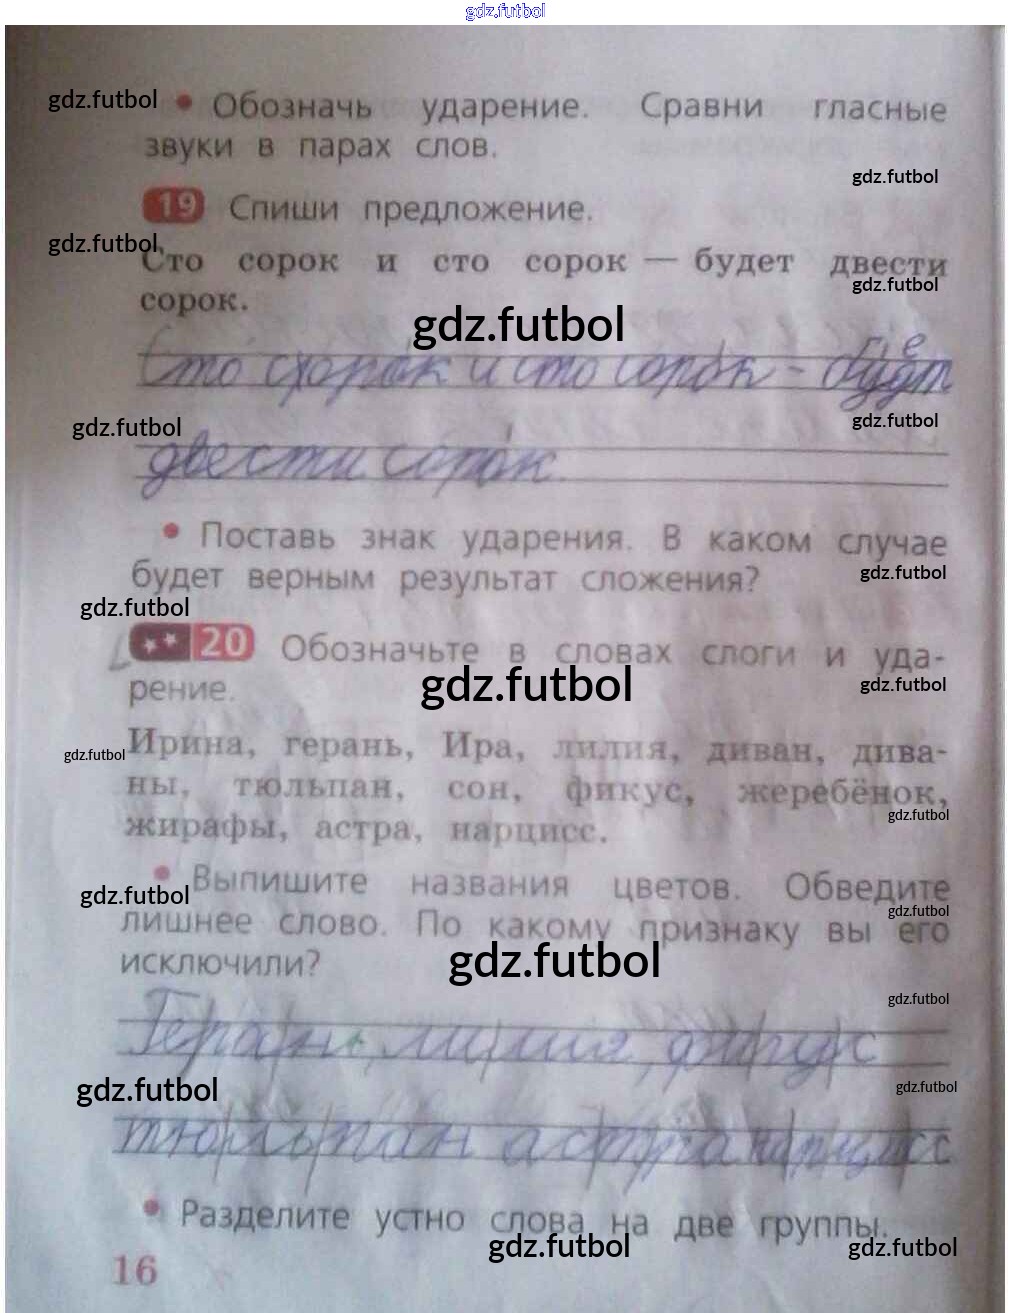 gdz.futbol
gdz.futbol
• Обозначь ударение. Сравни гласные
звуки в парах слов.
gdz.futbol
19 Спиши предложение.
gdz.futbol
Сто сорок и сто сорок — будет двести
gdz.futbol
сорок.
gdz.futbol
Сто сорок и сто сорок - будет
gdz.futbol
gdz.futbol
двести сорок.
• Поставь знак ударения. В каком случае
будет верным результат сложения?
gdz.futbol
gdz.futbol
20 Обозначьте в словах слоги и уда-
рение.
gdz.futbol
gdz.futbol
gdz.futbol
Ирина, герань, Ира, лилия, диван, дива-
ны, тюльпан, сон, фикус, жеребёнок,
gdz.futbol
жирафы, астра, нарцисс.
• Выпишите названия цветов. Обведите
gdz.futbol
gdz.futbol
лишнее слово. По какому признаку вы его
исключили?
gdz.futbol
gdz.futbol
Герань, лилия, фикус
gdz.futbol
gdz.futbol
тюльпан астра нарцисс
• Разделите устно слова на две группы.
gdz.futbol
gdz.futbol
16